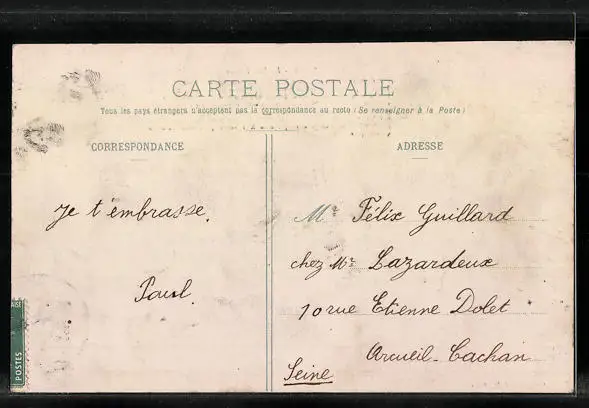 CARTE POSTALE
Tous les pays étrangers n'acceptent pas la correspondance au recto (Se renseigner à la Poste)
CORRESPONDANCE
ADRESSE
Je t'embrasse.
Paul.
Mr Félix Guillard
chez Mr Lazardeux
10 rue Etienne Dolet
Arcueil-Cachan
Seine
POSTES